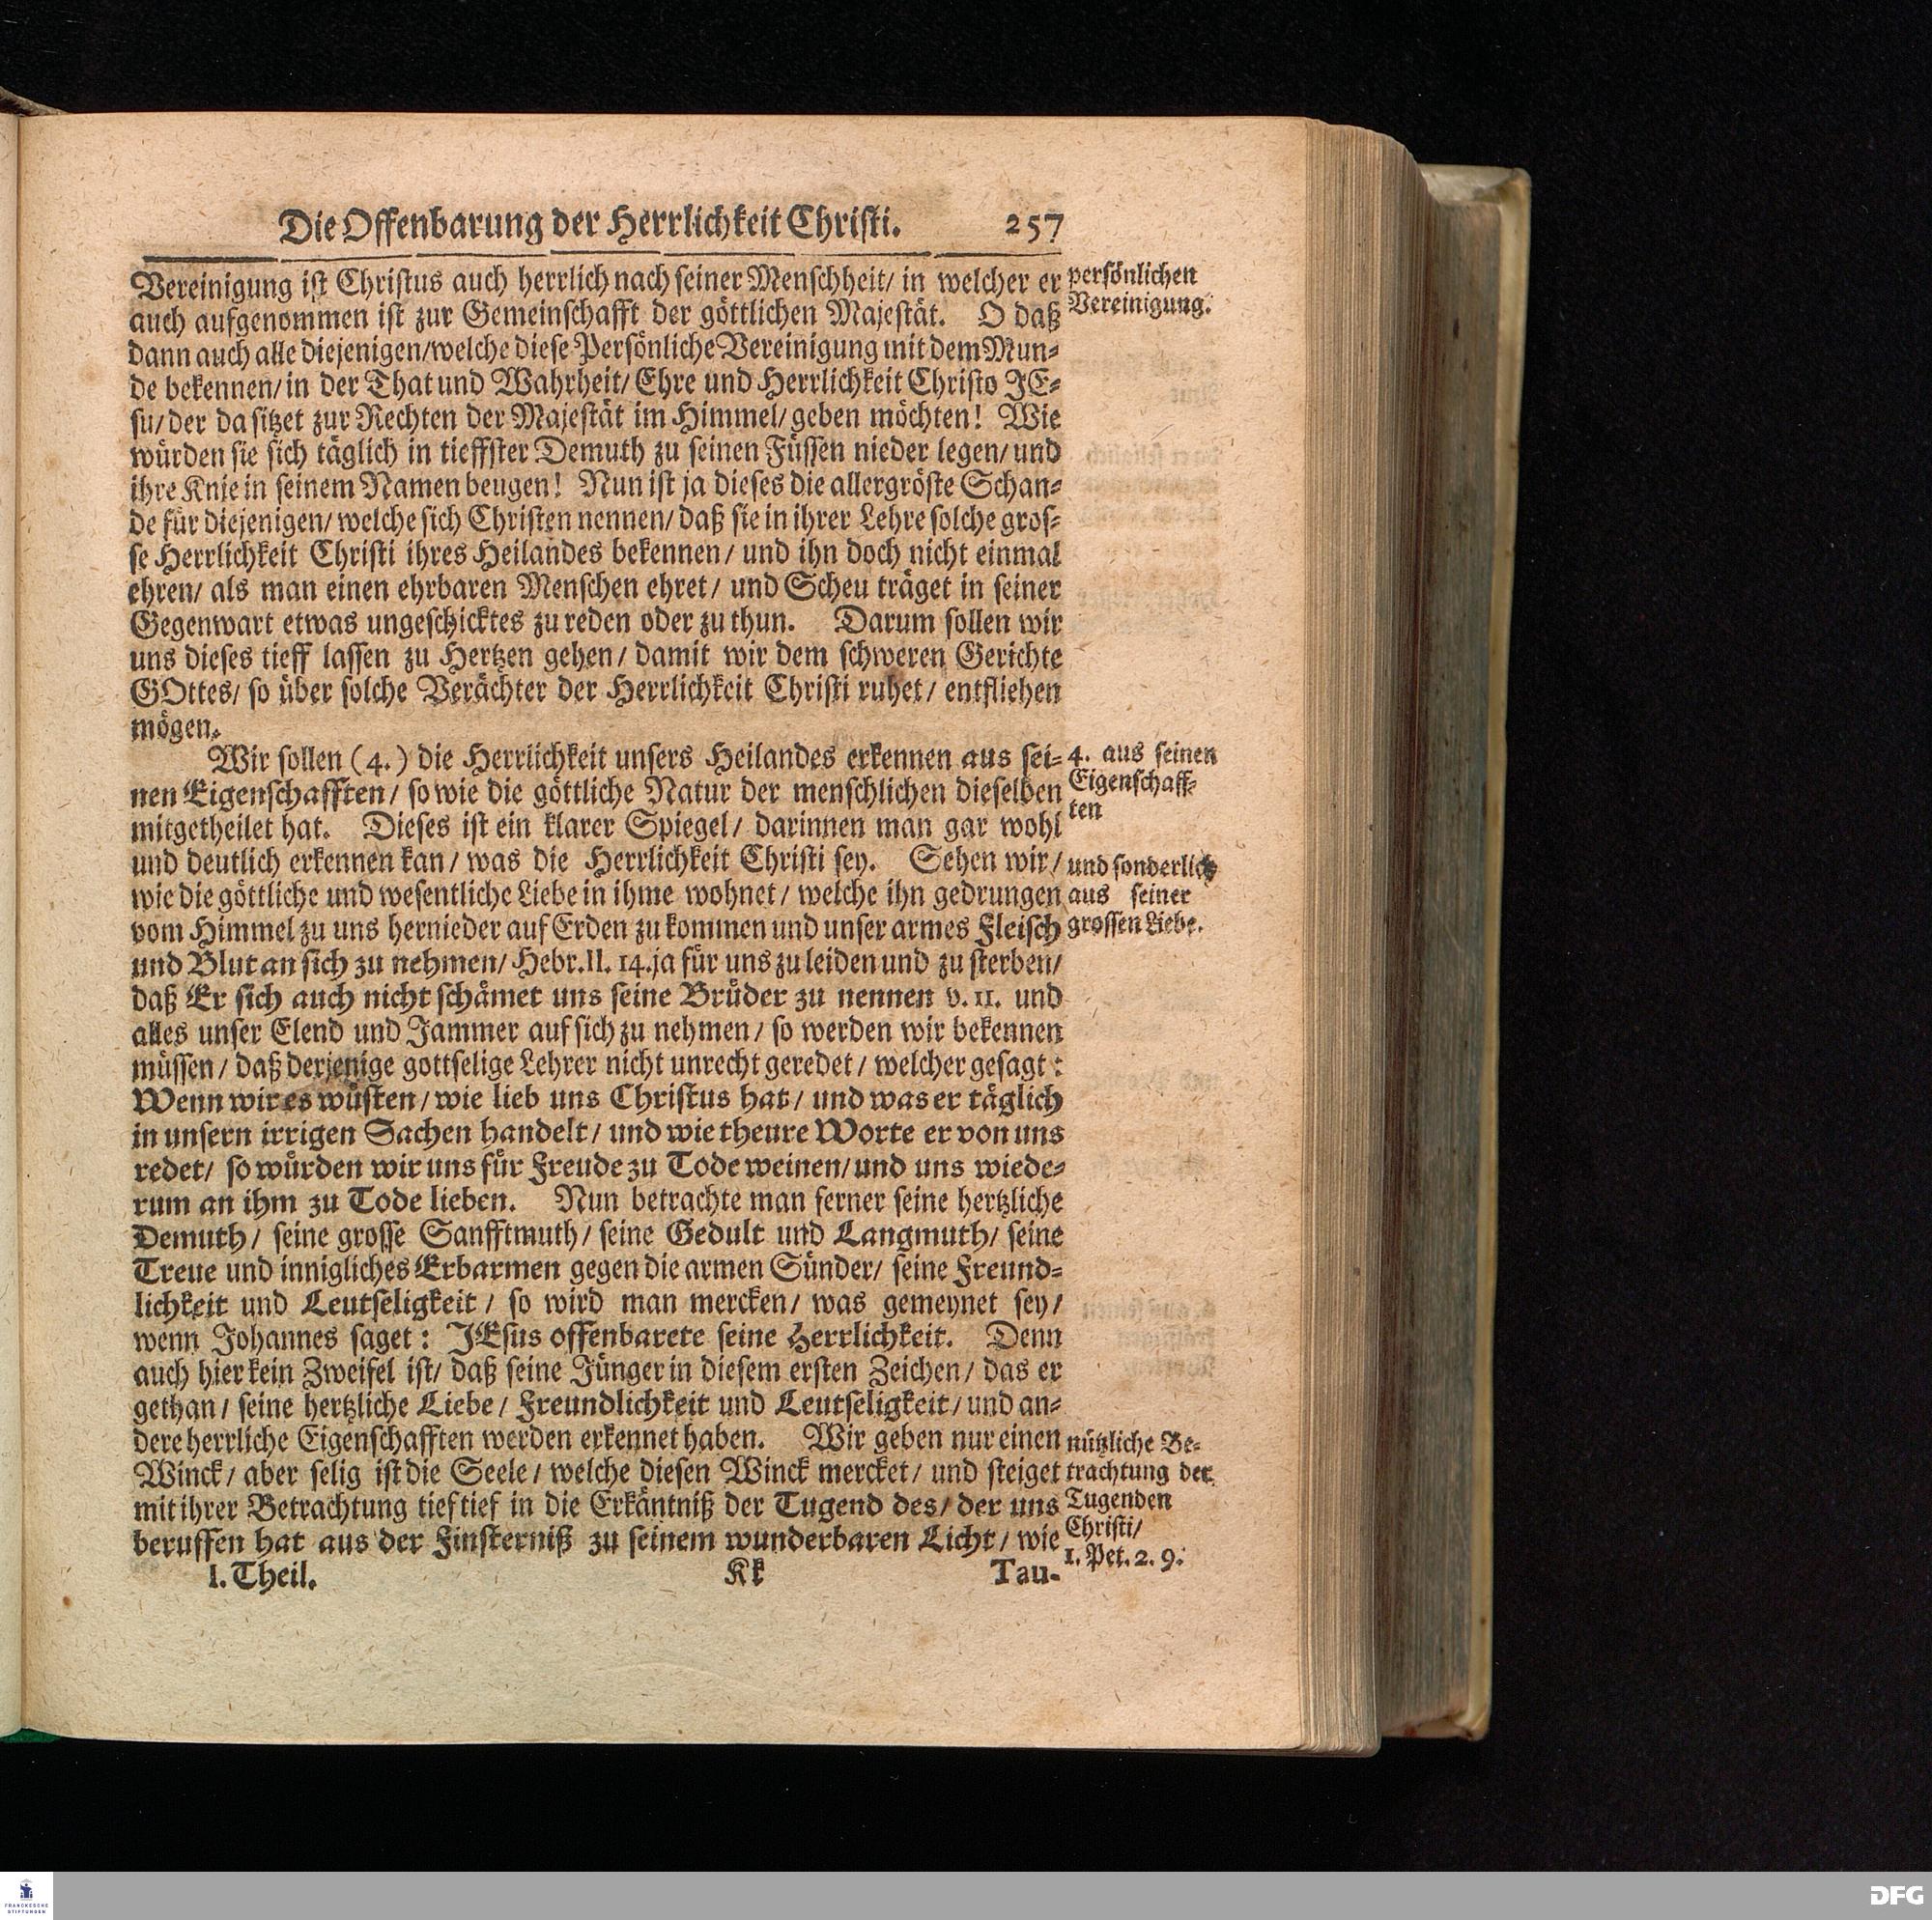 Die Offenbarung der Herrlichkeit Christi. 257
Vereinigung ist Christus auch herrlich nach seiner Menschheit/ in welcher er
auch aufgenommen ist zur Gemeinschafft der göttlichen Majestät. O daß
dann auch alle diejenigen/welche diese Persönliche Vereinigung mit dem Mun-
de bekennen/ in der That und Wahrheit/ Ehre und Herrlichkeit Christo JE-
su/ der da sitzet zur Rechten der Majestät im Himmel/ geben möchten! Wie
würden sie sich täglich in tieffster Demuth zu seinen Füssen nieder legen/ und
ihre Knie in seinem Namen beugen! Nun ist ja dieses die allergröste Schan-
de für diejenigen/ welche sich Christen nennen/ daß sie in ihrer Lehre solche gros-
se Herrlichkeit Christi ihres Heilandes bekennen/ und ihn doch nicht einmal
ehren/ als man einen ehrbaren Menschen ehret/ und Scheu träget in seiner
Gegenwart etwas ungeschicktes zu reden oder zu thun. Darum sollen wir
uns dieses tieff lassen zu Hertzen gehen/ damit wir dem schweren Gerichte
GOttes/ so über solche Verächter der Herrlichkeit Christi ruhet/ entfliehen
mögen.
persönlichen
Vereinigung.
Wir sollen (4.) die Herrlichkeit unsers Heilandes erkennen aus sei-
nen Eigenschafften/ so wie die göttliche Natur der menschlichen dieselben
mitgetheilet hat. Dieses ist ein klarer Spiegel/ darinnen man gar wohl
und deutlich erkennen kan/ was die Herrlichkeit Christi sey. Sehen wir/
wie die göttliche und wesentliche Liebe in ihme wohnet/ welche ihn gedrungen
vom Himmel zu uns hernieder auf Erden zu kommen und unser armes Fleisch
und Blut an sich zu nehmen/ Hebr. II. 14. ja für uns zu leiden und zu sterben/
daß Er sich auch nicht schämet uns seine Brüder zu nennen v. 11. und
alles unser Elend und Jammer auf sich zu nehmen/ so werden wir bekennen
müssen/ daß derjenige gottselige Lehrer nicht unrecht geredet/ welcher gesagt:
Wenn wir es wüsten/ wie lieb uns Christus hat/ und was er täglich
in unsern irrigen Sachen handelt/ und wie theure Worte er von uns
redet/ so würden wir uns für Freude zu Tode weinen/ und uns wiede-
rum an ihm zu Tode lieben. Nun betrachte man ferner seine hertzliche
Demuth/ seine grosse Sanfftmuth/ seine Gedult und Langmuth/ seine
Treue und innigliches Erbarmen gegen die armen Sünder/ seine Freund-
lichkeit und Leutseligkeit/ so wird man mercken/ was gemeynet sey/
wenn Johannes saget: JEsus offenbarete seine Herrlichkeit. Denn
auch hier kein Zweifel ist/ daß seine Jünger in diesem ersten Zeichen/ das er
gethan/ seine hertzliche Liebe/ Freundlichkeit und Leutseligkeit/ und an-
dere herrliche Eigenschafften werden erkennet haben. Wir geben nur einen
Winck/ aber selig ist die Seele/ welche diesen Winck mercket/ und steiget
mit ihrer Betrachtung tief tief in die Erkäntniß der Tugend des/ der uns
beruffen hat aus der Finsterniß zu seinem wunderbaren Licht/ wie
4. aus seinen
Eigenschaff-
ten
und sonderlich
aus seiner
grossen Liebe.
nützliche Be-
trachtung der
Tugenden
Christi/
1. Pet. 2. 9.
I. Theil. Kk Tau-
FRANCKESCHE
STIFTUNGEN
DFG